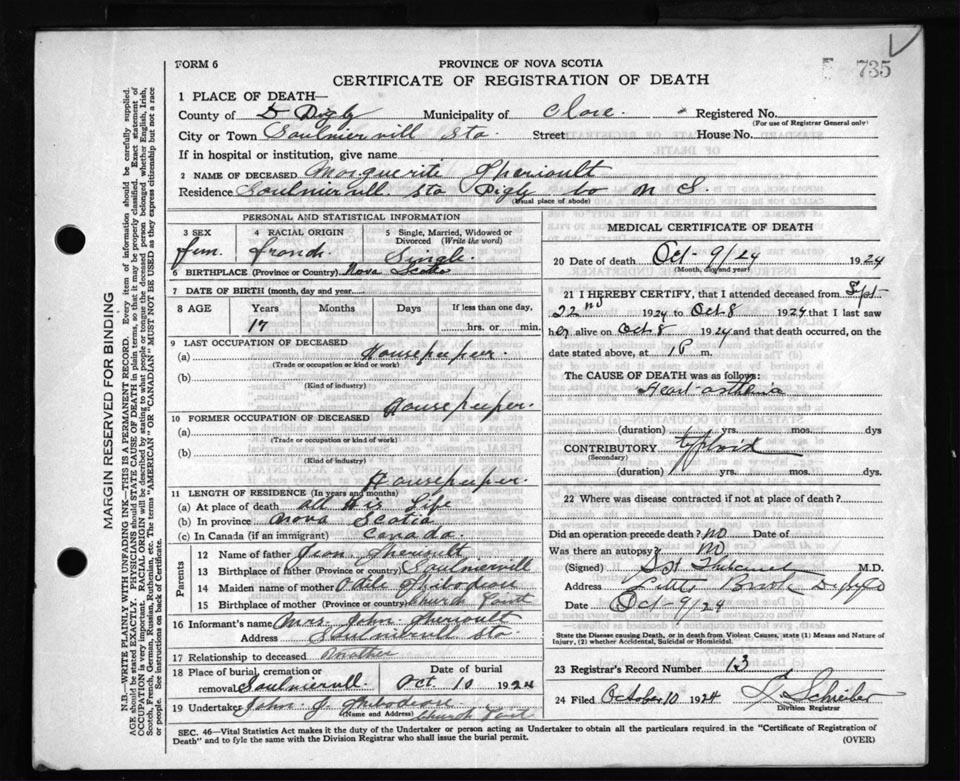 FORM 6
PROVINCE OF NOVA SCOTIA
735
CERTIFICATE OF REGISTRATION OF DEATH
1 PLACE OF DEATH—
County of Digby Municipality of Clare Registered No.
(For use of Registrar General only)
City or Town Saulnierville Sta. Street House No.
If in hospital or institution, give name
2 NAME OF DECEASED Marguerite Theriault
Residence Saulnierville Sta Digby Co N S.
(Usual place of abode)
PERSONAL AND STATISTICAL INFORMATION
3 SEX 4 RACIAL ORIGIN 5 Single, Married, Widowed or Divorced (Write the word)
fem. french Single.
6 BIRTHPLACE (Province or Country) Nova Scotia
7 DATE OF BIRTH (month, day and year)
8 AGE Years Months Days If less than one day,
17 hrs. or min.
9 LAST OCCUPATION OF DECEASED
(a) Housekeeper.
(Trade or occupation or kind or work)
(b)
(Kind of industry)
Housekeeper.
10 FORMER OCCUPATION OF DECEASED
(a)
(Trade or occupation or kind of work)
(b)
(Kind of industry)
Housekeeper.
11 LENGTH OF RESIDENCE (In years and months)
(a) At place of death all His Life
(b) In province Nova Scotia
(c) In Canada (if an immigrant) Canada.
Parents
12 Name of father Jean Theriault
13 Birthplace of father (Province or country) Saulniervill
14 Maiden name of mother Odile Thibodeau
15 Birthplace of mother (Province or country) Church Point
16 Informant's name Mrs John Theriault
Address Saulniervill Sta.
17 Relationship to deceased Mother
18 Place of burial, cremation or Date of burial
removal Saulniervill. Oct 10 1924
19 Undertaker John J. Thibodeau
(Name and Address) Church Point
MEDICAL CERTIFICATE OF DEATH
20 Date of death Oct-9/24 1924
(Month, day and year)
21 I HEREBY CERTIFY, that I attended deceased from Sept-
22nd 1924 to Oct 8 1924 that I last saw
her alive on Oct 8 1924 and that death occurred, on the
date stated above, at 1P m.
The CAUSE OF DEATH was as follows:
Heart-asthenia
(duration) yrs. mos. dys
CONTRIBUTORY typhoid
(Secondary)
(duration) yrs. mos. dys.
22 Where was disease contracted if not at place of death?
Did an operation precede death? NO Date of
Was there an autopsy? NO
(Signed) M.D.
Address Little Brook Digby Co
Date Oct-9/24
State the Disease causing Death, or in death from Violent Causes, state (1) Means and Nature of
Injury, (2) whether Accidental, Suicidal or Homicidal.
23 Registrar's Record Number 13
24 Filed October 10 1924
Division Registrar
SEC. 46—Vital Statistics Act makes it the duty of the Undertaker or person acting as Undertaker to obtain all the particulars required in the "Certificate of Registration of
Death" and to fyle the same with the Division Registrar who shall issue the burial permit. (OVER)
MARGIN RESERVED FOR BINDING
N.B.—WRITE PLAINLY WITH UNFADING INK—THIS IS A PERMANENT RECORD. Every item of information should be carefully supplied.
AGE should be stated EXACTLY. PHYSICIANS should STATE CAUSE OF DEATH in plain terms, so that it may be properly classified. Exact statement of
OCCUPATION is very important. RACIAL ORIGIN will be described by stating to what people or tongue the deceased person belonged, whether English, Irish,
Scotch, French, German, Russian, Ruthenian, etc. The terms "AMERICAN" OR "CANADIAN" MUST NOT BE USED as they express citizenship but not a race
or people. See instructions on back of Certificate.